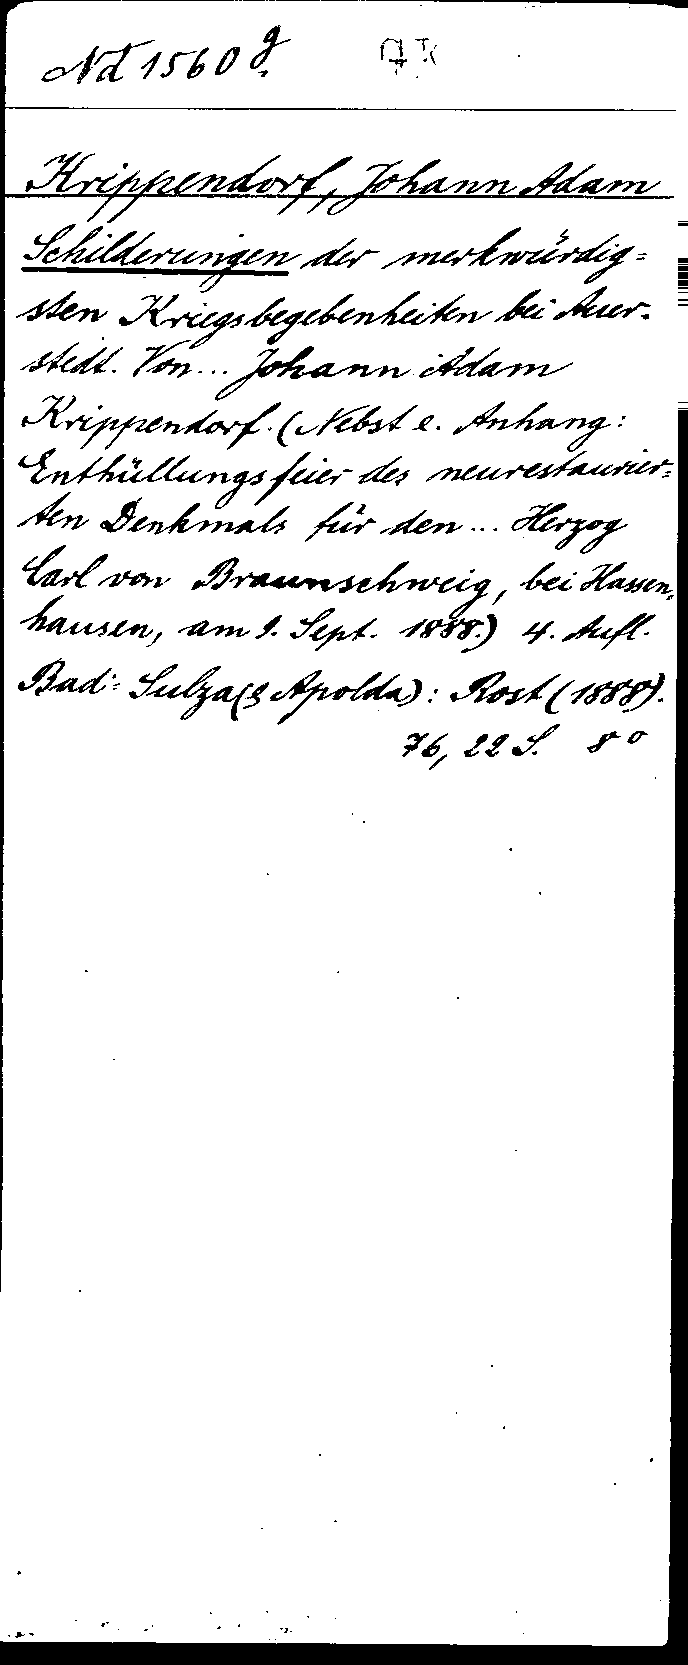 Nd 1560 g.
Krippendorf, Johann Adam
Schilderungen der merkwürdig=
sten Kriegsbegebenheiten bei Auer-
stedt. Von... Johann Adam
Krippendorf. (Nebst e. Anhang:
Enthüllungsfeier des neurestaurier=
ten Denkmals für den ... Herzog
Carl von Braunschweig, bei Hassen-
hausen, am 9. Sept. 1888.) 4. Aufl.
Bad-Sulza (& Apolda): Rost (1888).
76, 22 S. 8°